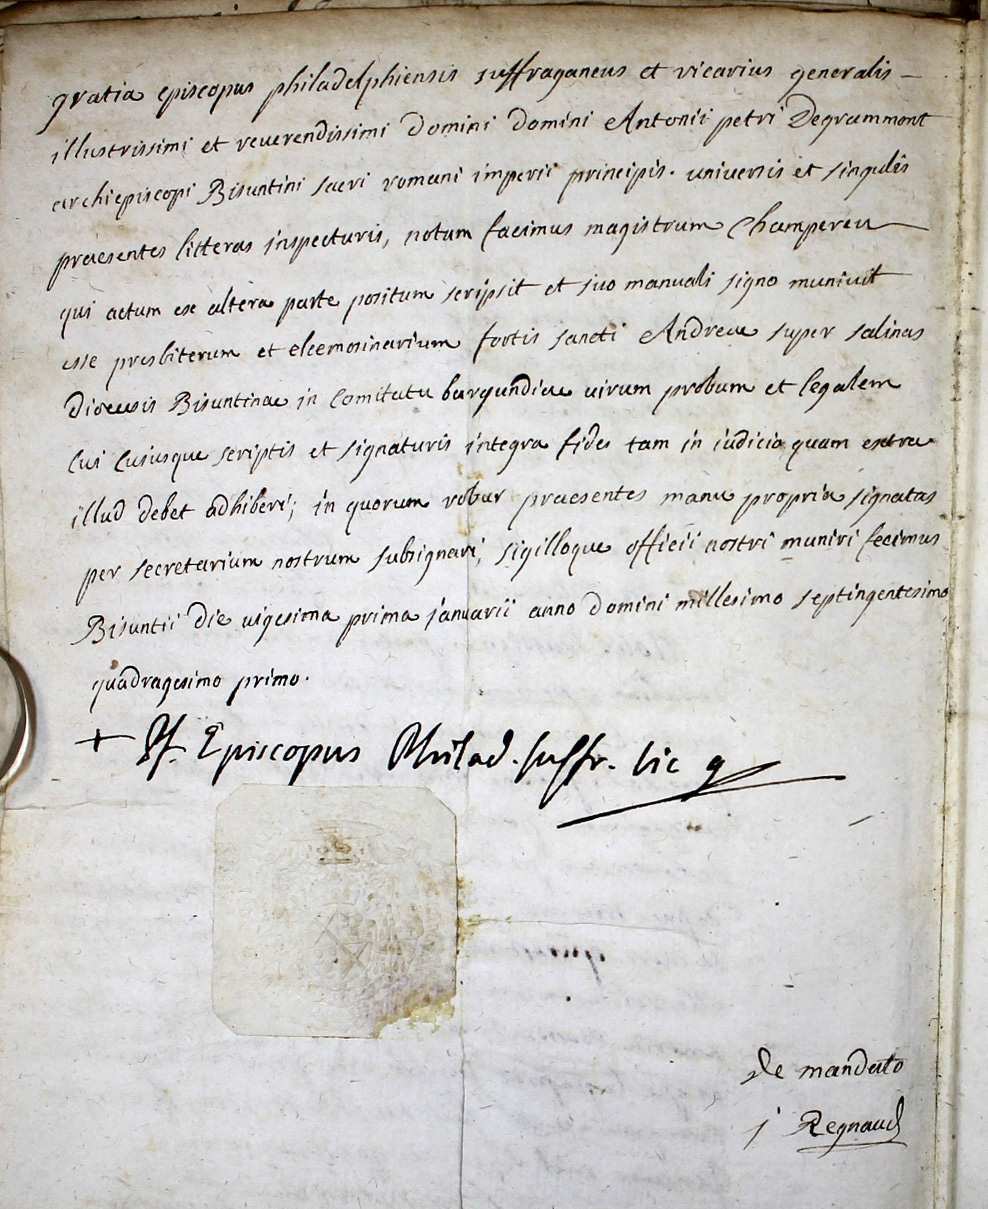 gratia episcopus philadelphiensis suffraganeus et vicarius generalis
illustrissimi et reverendissimi Domini Domini Antonii petri Degrammont
archiepiscopi Bisuntini sacri romani imperii principis. universis et singulis
praesentes litteras inspecturis, notum facimus magistrum Champereu
qui actum exe altera parte positum scripsit et suo manuali signo munivit
esse presbiterum et eleemosinarium fortis sancti Andreae super salinas
Dioecesis Bisuntinae in Comitatu burgundiae virum probum et legalem
Cui Cuiusque scriptis et signaturis integra fides tam in iudicio quam extra
illud debet adhiberi; in quorum robur praesentes manu propria signatas
per secretarium nostrum subsignari, sigilloque officii nostri muniri fecimus
Bisuntii die vigesima prima januarii anno Domini millesimo septingentesimo
quadragesimo primo.
+ Episcopus Philad. suffr. Vic g
De mandato
j Regnaud